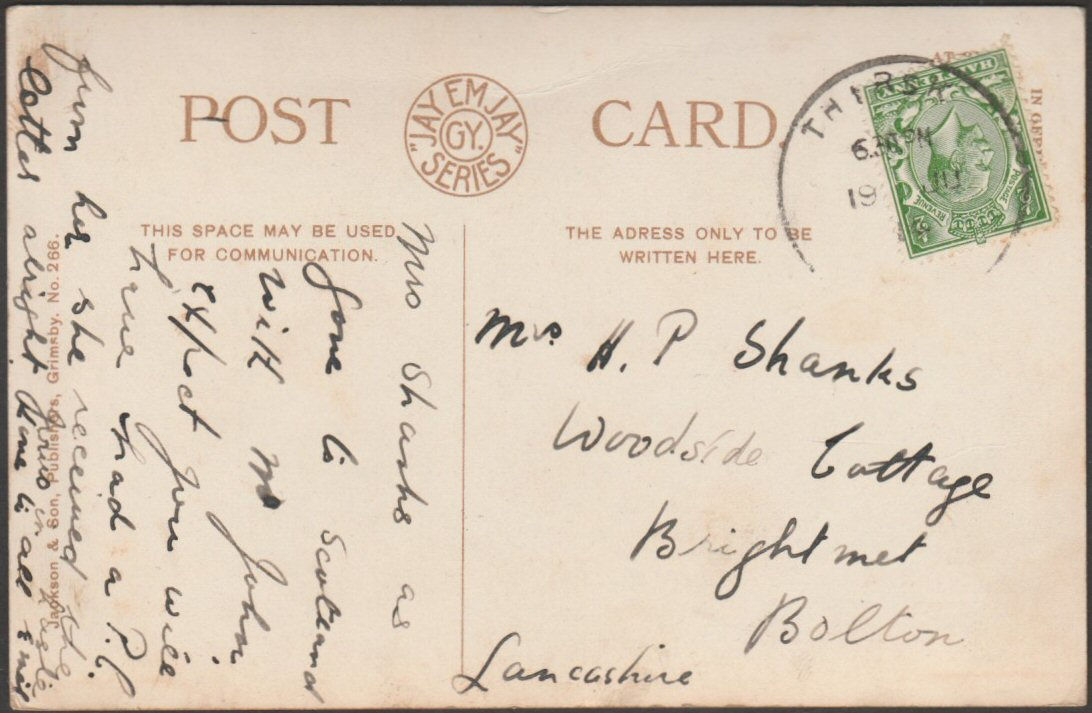 POST CARD.
"JAY EM JAY"
GY.
SERIES
THIS SPACE MAY BE USED
FOR COMMUNICATION.
THE ADRESS ONLY TO BE
WRITTEN HERE.
THIRSK
PM
19
HALFPENNY
POSTAGE
REVENUE
Mrs H. P Shanks
Woodside Cottage
Brightmet
Bolton
Lancashire
Mrs Shanks as
gone to Scotland
with Mr John
expect you will
have had a P.C
from her she received the
letter alright yours in haste
Jackson & Son, Publishers, Grimsby. No. 266.